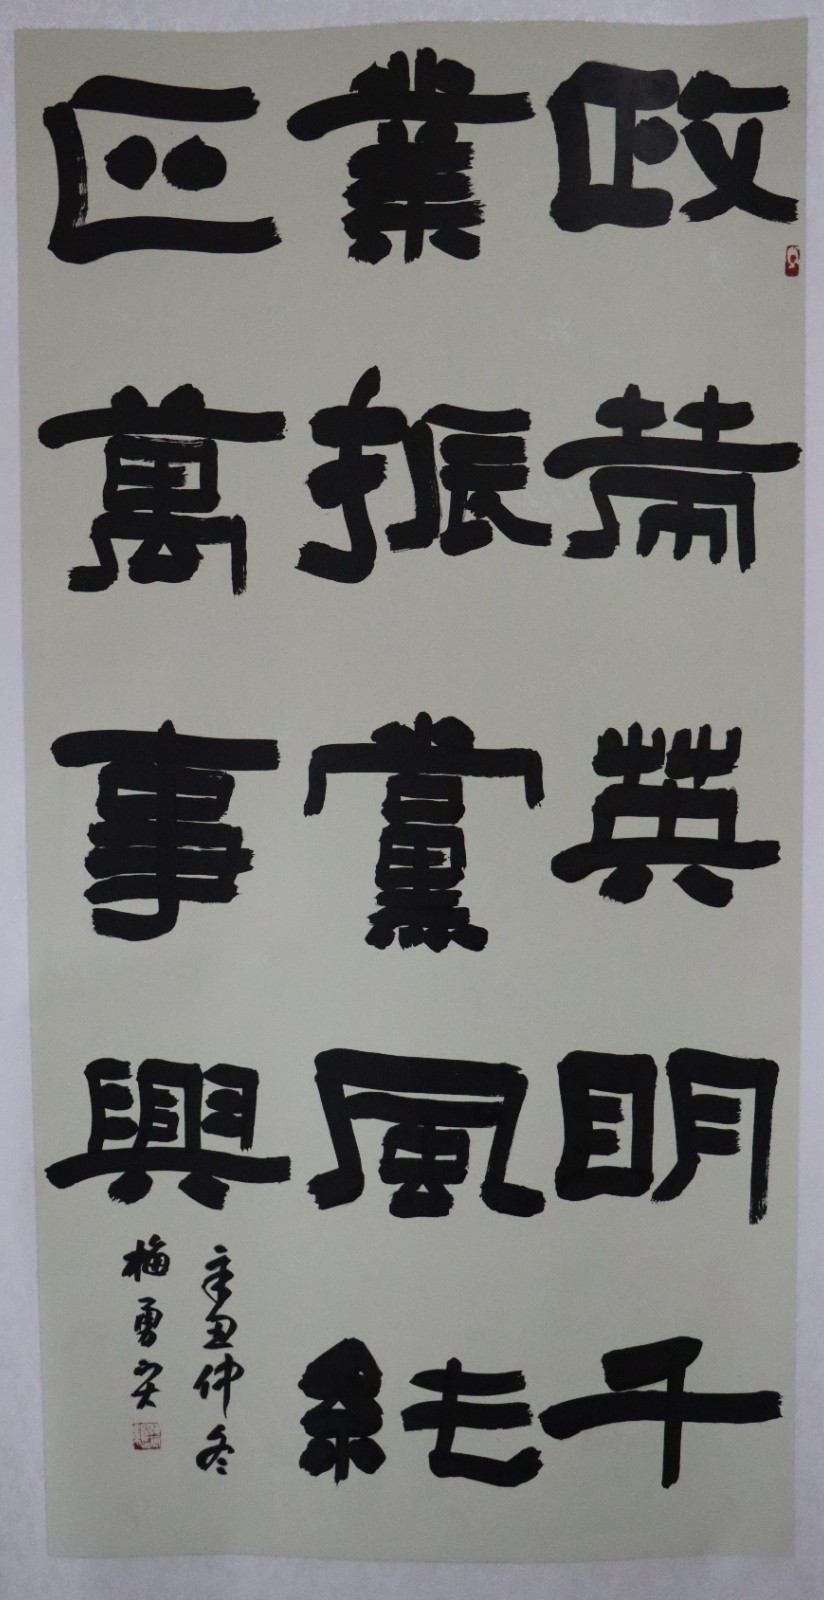 政策英明千
業振黨風純
正萬事興
辛丑仲冬
梅勇